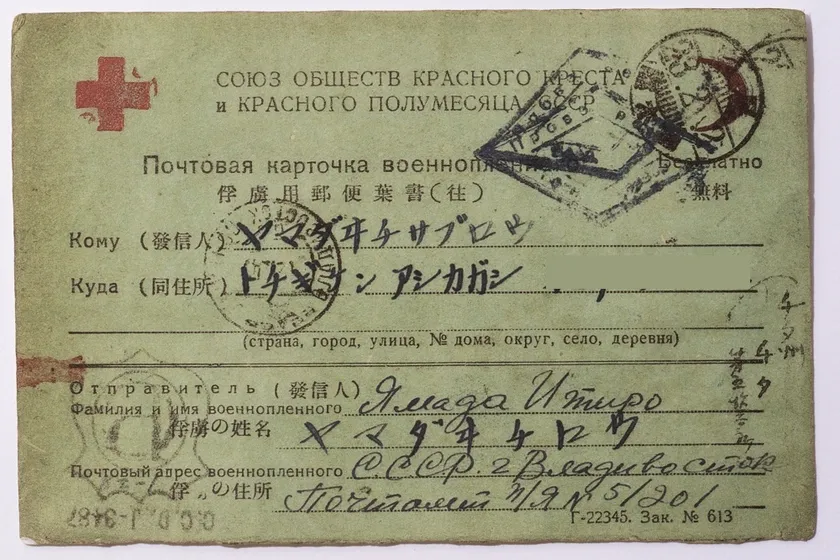 СОЮЗ ОБЩЕСТВ КРАСНОГО КРЕСТА
и КРАСНОГО ПОЛУМЕСЯЦА СССР
Почтовая карточка военнопленного
Бесплатно
俘虜用郵便葉書(往)
無料
Кому (發信人) ヤマダヰチサブロウ
Куда (同住所) トチギケン アシカガシ
(страна, город, улица, № дома, округ, село, деревня)
Отправитель (發信人)
Фамилия и имя военнопленного Ямада Итиро
俘虜の姓名 ヤマダヰチロウ
Почтовый адрес военнопленного СССР. г Владивосток
俘 の住所 Почтамт п/я № 5/201
Г-22345. Зак. № 613
C.C.D.J-3487